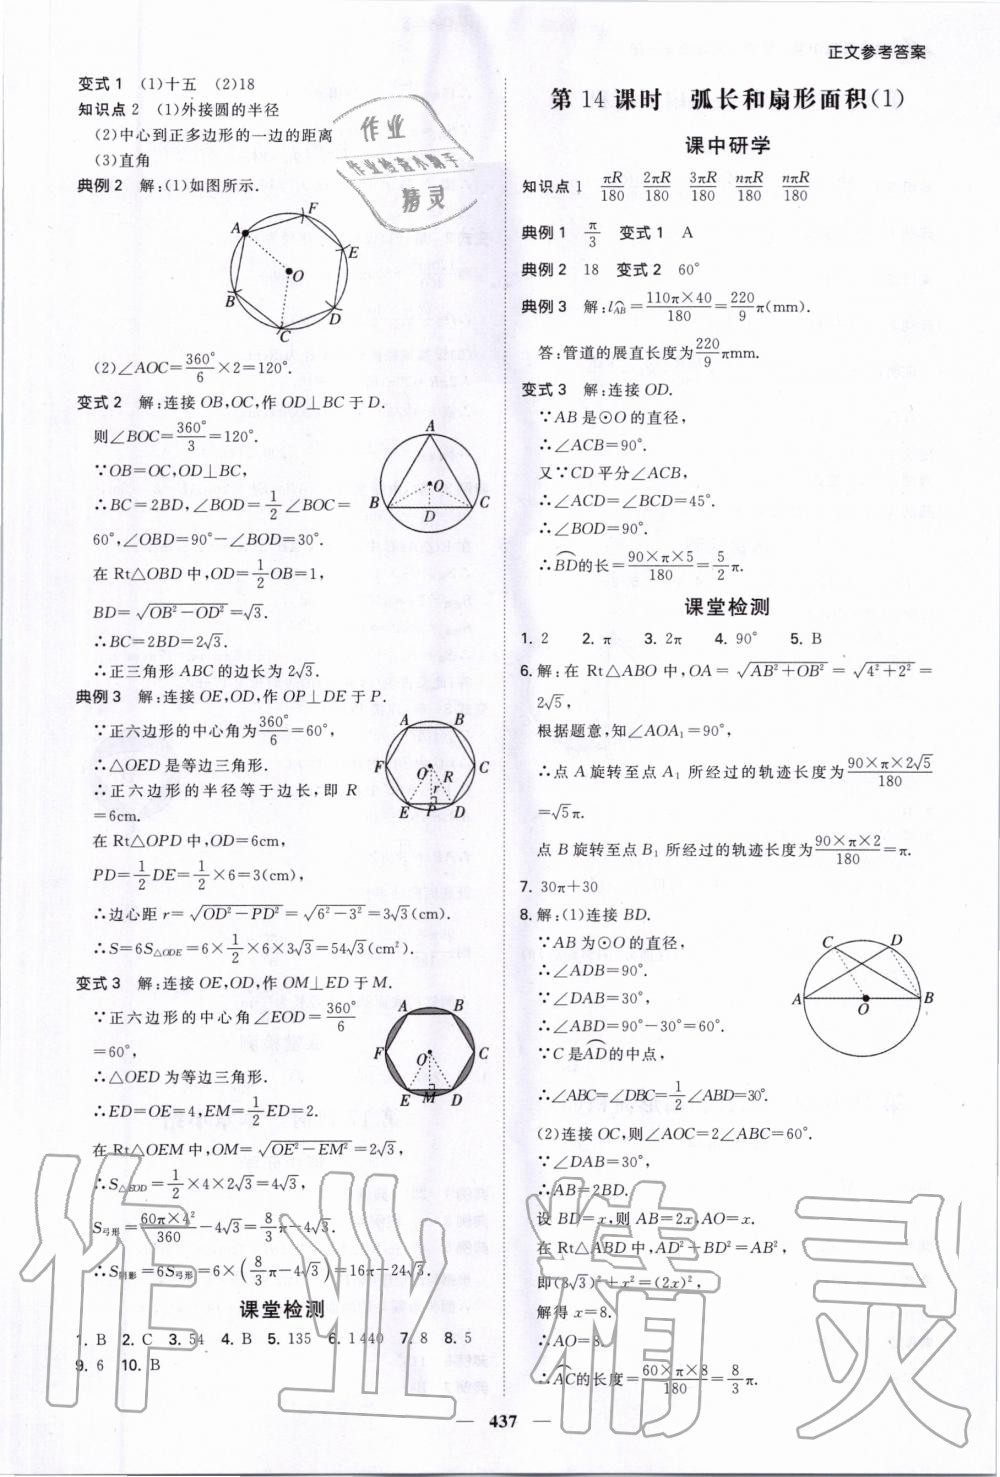 正文参考答案
变式1 (1)十五 (2)18
知识点2 (1)外接圆的半径
(2)中心到正多边形的一边的距离
(3)直角
典例2 解:(1)如图所示.
A F E B C D O
(2)∠AOC=360°/6×2=120°.
变式2 解:连接OB,OC,作OD⊥BC于D.
则∠BOC=360°/3=120°.
∵OB=OC,OD⊥BC,
∴BC=2BD,∠BOD=1/2∠BOC=
60°,∠OBD=90°-∠BOD=30°.
在Rt△OBD中,OD=1/2OB=1,
BD=√(OB²-OD²)=√3.
∴BC=2BD=2√3.
∴正三角形ABC的边长为2√3.
A B C D O
典例3 解:连接OE,OD,作OP⊥DE于P.
∵正六边形的中心角为360°/6=60°,
∴△OED是等边三角形.
∴正六边形的半径等于边长,即R
=6cm.
在Rt△OPD中,OD=6cm,
PD=1/2DE=1/2×6=3(cm),
∴边心距r=√(OD²-PD²)=√(6²-3²)=3√3(cm).
∴S=6S△ODE=6×1/2×6×3√3=54√3(cm²).
A B F C O R r E P D
变式3 解:连接OE,OD,作OM⊥ED于M.
∵正六边形的中心角∠EOD=360°/6
=60°,
∴△OED为等边三角形.
∴ED=OE=4,EM=1/2ED=2.
在Rt△OEM中,OM=√(OE²-EM²)=2√3,
∴S△EOD=1/2×4×2√3=4√3,
S弓形=60π×4²/360-4√3=8/3π-4√3.
∴S阴影=6S弓形=6×(8/3π-4√3)=16π-24√3.
A B F C O E M D
课堂检测
1. B 2. C 3. 54 4. B 5. 135 6. 1 440 7. 8 8. 5
9. 6 10. B
第14课时 弧长和扇形面积(1)
课中研学
知识点1 πR/180 2πR/180 3πR/180 nπR/180 nπR/180
典例1 π/3 变式1 A
典例2 18 变式2 60°
典例3 解:l⌒AB=110π×40/180=220/9π(mm).
答:管道的展直长度为220/9πmm.
变式3 解:连接OD.
∵AB是⊙O的直径,
∴∠ACB=90°.
又∵CD平分∠ACB,
∴∠ACD=∠BCD=45°.
∴∠BOD=90°.
∴⌒BD的长=90×π×5/180=5/2π.
课堂检测
1. 2 2. π 3. 2π 4. 90° 5. B
6. 解:在Rt△ABO中,OA=√(AB²+OB²)=√(4²+2²)=
2√5,
根据题意,知∠AOA₁=90°,
∴点A旋转至点A₁所经过的轨迹长度为90×π×2√5/180
=√5π.
点B旋转至点B₁所经过的轨迹长度为90×π×2/180=π.
7. 30π+30
8. 解:(1)连接BD.
∵AB为⊙O的直径,
∴∠ADB=90°.
∵∠DAB=30°,
∴∠ABD=90°-30°=60°.
∵C是⌒AD的中点,
∴∠ABC=∠DBC=1/2∠ABD=30°.
(2)连接OC,则∠AOC=2∠ABC=60°.
∵∠DAB=30°,
∴AB=2BD.
设BD=x,则AB=2x,AO=x.
在Rt△ABD中,AD²+BD²=AB²,
即(8√3)²+x²=(2x)²,
解得x=8.
∴AO=8.
∴⌒AC的长度=60×π×8/180=8/3π.
C D A O B
— 437 —
作业
作业检查小帮手
精灵
作业精灵